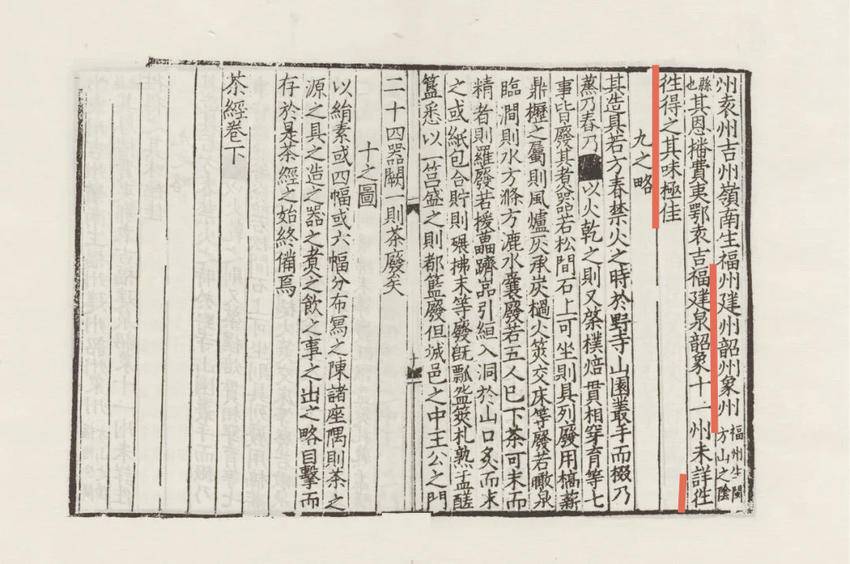 州袁州吉州嶺南生福州建州韶州象州福州生閩方山之陰
縣也其恩播費夷鄂袁吉福建泉韶象十一州未詳徃
徃得之其味極佳
九之略
其造具若方春禁火之時於野寺山園叢手而掇乃
蒸乃舂乃以火乾之則又棨樸焙貫相穿育等七
事皆廢其煮器若松間石上可坐則具列廢用槁薪
鼎櫪之屬則風爐灰承炭檛火筴交床等廢若瞰泉
臨澗則水方滌方漉水囊廢若五人已下茶可末而
精者則羅廢若援藟躋嵒引絙入洞於山口炙而末
之或紙包合貯則碾拂末等廢旣瓢盌筴札熟盂鹺
簋悉以一筥盛之則都籃廢但城邑之中王公之門
二十四器闕一則茶廢矣
十之圖
以絹素或四幅或六幅分布寫之陳諸座隅則茶之
源之具之造之器之煮之飲之事之出之略目擊而
存於是茶經之始終備焉
茶經卷下